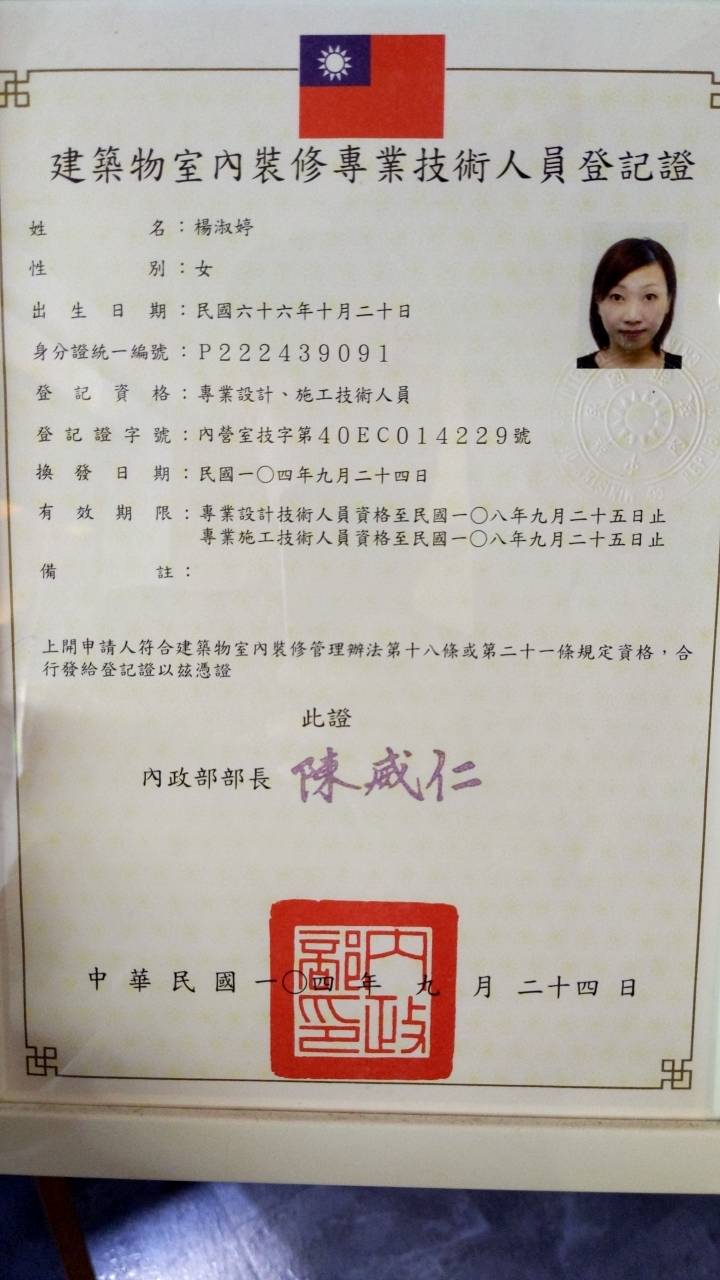 建築物室內裝修專業技術人員登記證
姓名：楊淑婷
性別：女
出生日期：民國六十六年十月二十日
身分證統一編號：P222439091
登記資格：專業設計、施工技術人員
登記證字號：內營室技字第40EC014229號
換發日期：民國一〇四年九月二十四日
有效期限：專業設計技術人員資格至民國一〇八年九月二十五日止
專業施工技術人員資格至民國一〇八年九月二十五日止
備註：
上開申請人符合建築物室內裝修管理辦法第十八條或第二十一條規定資格，合
行發給登記證以玆憑證
此證
內政部部長 陳威仁
中華民國一〇四年九月二十四日
內政
部印